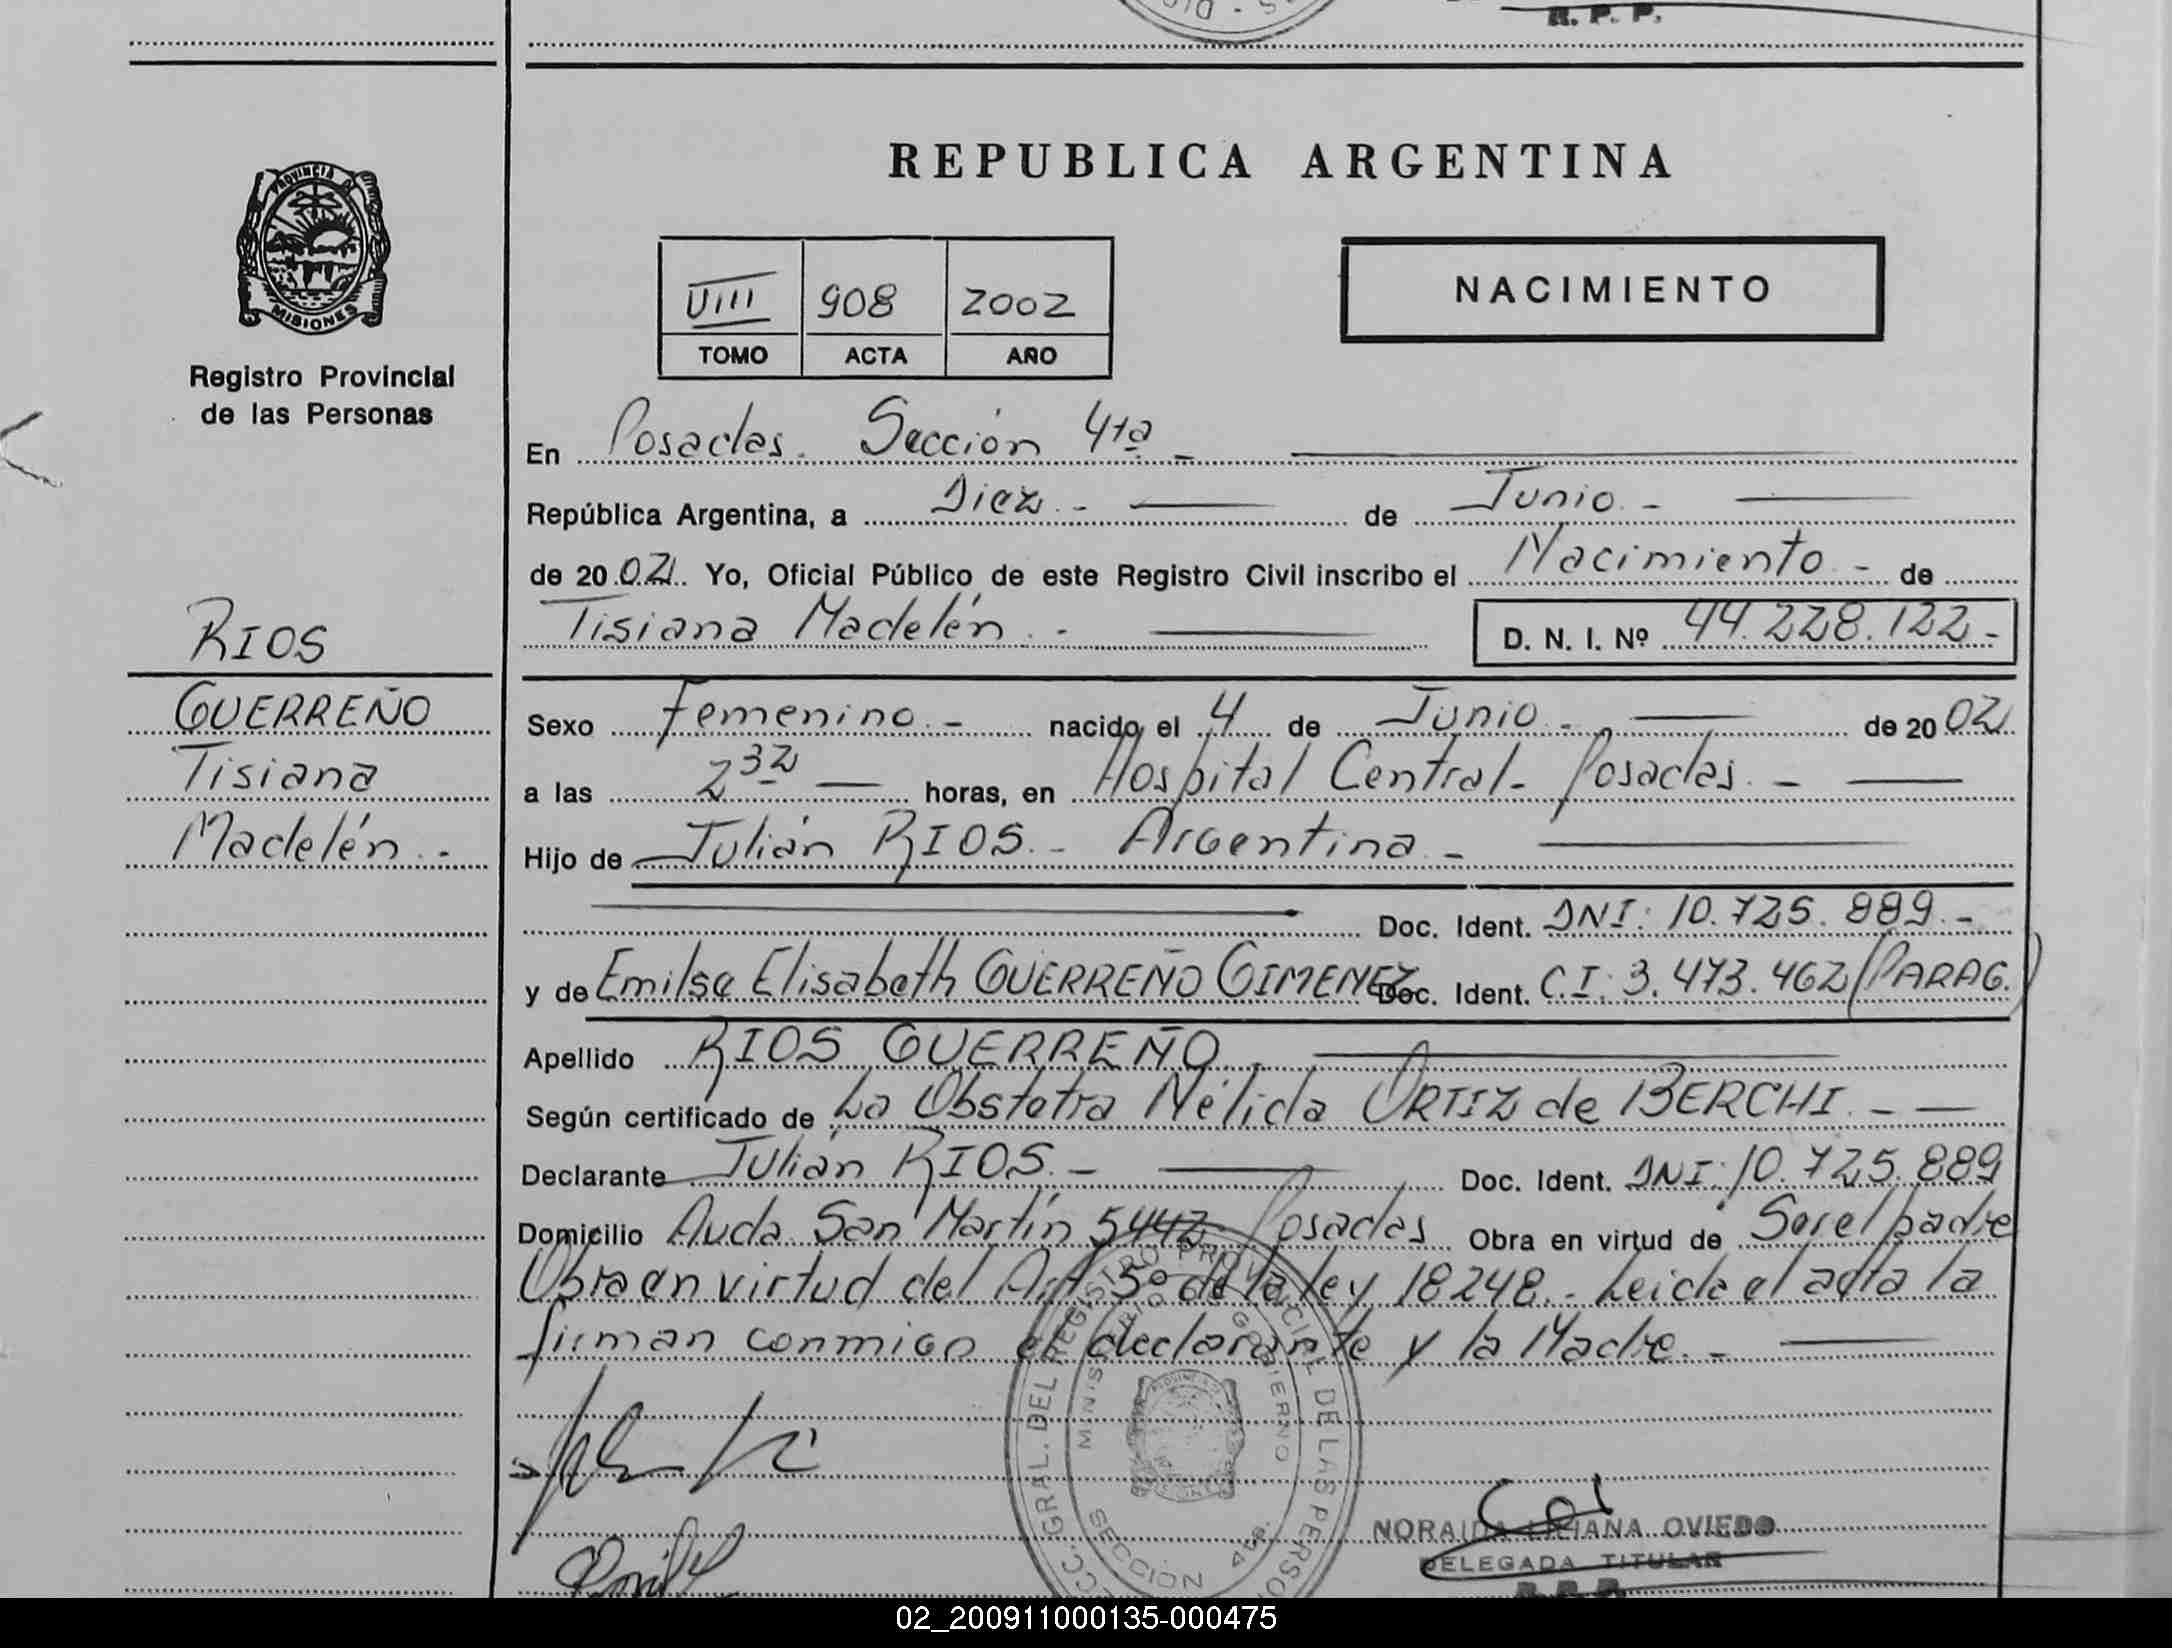 R. P. P.
PROVINCIA DE
MISIONES
Registro Provincial
de las Personas
RIOS
GUERREÑO
Tisiana
Madelén.-
REPUBLICA ARGENTINA
VIII 908 2002
TOMO ACTA AÑO
NACIMIENTO
En Posadas. Sección 4ta -
República Argentina, a Diez.- de Junio.-
de 2002. Yo, Oficial Público de este Registro Civil inscribo el Nacimiento.- de
Tisiana Madelén.- D. N. I. Nº 44.228.122.-
Sexo Femenino.- nacido el 4 de Junio.- de 2002
a las 2 32 horas, en Hospital Central- Posadas.-
Hijo de Julián RIOS.- Argentina.-
Doc. Ident. DNI: 10.725.889.-
y de Emilse Elisabeth GUERREÑO GIMENEZ Doc. Ident. C.I: 3.473.462 (PARAG.)
Apellido RIOS GUERREÑO.
Según certificado de La Obstetra Nélida ORTIZ de BERCHI.-
Declarante Julián RIOS.- Doc. Ident. DNI: 10.725.889
Domicilio Avda. San Martín 5442 Posadas Obra en virtud de Ser el padre
Obra en virtud del Art. 5º de la ley 18248.- Leida el acta la
firman conmigo el declarante y la Madre.-
GRAL. DEL REGISTRO PROVINCIAL DE LAS PERSO
MINISTERIO DE GOBIERNO
SECCION 4ta.
NORAIDA LILIANA OVIEDO
DELEGADA TITULAR
R. P. P.
02_200911000135-000475